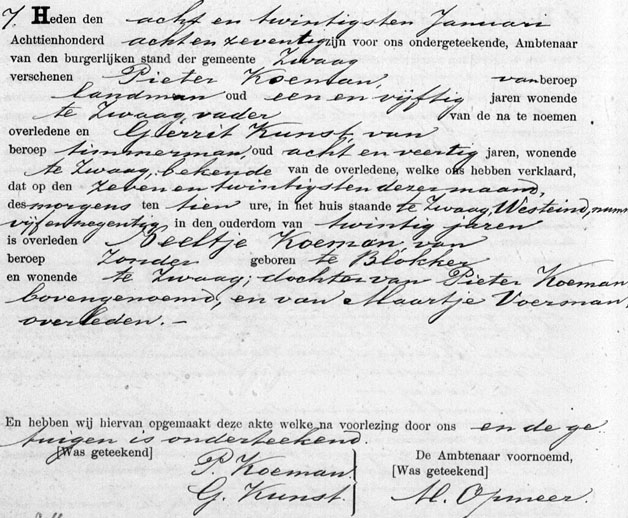 7. Heden den acht en twintigsten Januari
Achttienhonderd acht en zeventig zijn voor ons ondergeteekende, Ambtenaar
van den burgerlijken stand der gemeente Zwaag
verschenen Pieter Koeman, van beroep
landman oud een en vijftig jaren wonende
te Zwaag, vader van de na te noemen
overledene en Gerrit Kunst, van
beroep timmerman, oud acht en veertig jaren, wonende
te Zwaag, bekende van de overledene, welke ons hebben verklaard,
dat op den zeven en twintigsten dezer maand,
des morgens ten tien ure, in het huis staande te Zwaag, Westeind, num
vijfennegentig in den ouderdom van twintig jaren
is overleden Neeltje Koeman, van
beroep zonder geboren te Blokker
en wonende te Zwaag; dochter van Pieter Koeman
bovengenoemd, en van Maartje Voersman,
overleden. —
En hebben wij hiervan opgemaakt deze akte welke na voorlezing door ons en de ge
tuigen is onderteekend.
[Was geteekend]
P. Koeman
G. Kunst.
De Ambtenaar voornoemd,
[Was geteekend]
M. Opmeer.